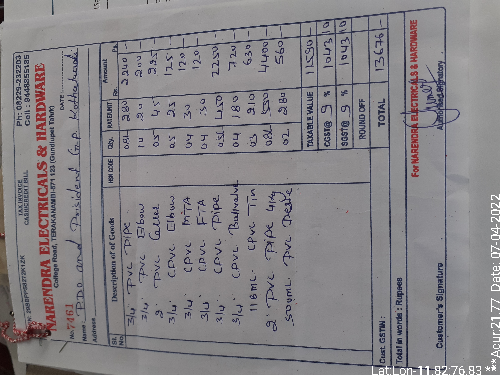 TAX INVOICE
CASH/CREDIT BILL
Ph: 08229-232203
Cell: 9448855189
NARENDRA ELECTRICALS & HARDWARE
College Road, TERAKANAMBI-571 123 (Gundlupet Taluk)
No. 7461
DATE
Name: PDO and President Grp
Address
Sl. No. Description of Goods HSN CODE Qty. RATE/UNIT Amount Rs. Ps.
3/4" PVC Pipe 280 2240
3/4" PVC Elbow 10 20 200
2" PVC 05 45 225
3/4" CPVC Elbow 05 25 125
3/4" CPVC MTA 04 30 120
3/4" CPVC FTA 04 30 120
3/4" CPVC Pipe 450 2250
3/4" CPVC Ballvalve 04 180 720
118ML CPVC Tin 03 210 630
2" PVC Pipe 4kg 550 4400
500ML PVC 02 280 560
TAXABLE VALUE 11590
CGST@ 9 % 1043 10
SGST@ 9 % 1043 10
ROUND OFF
TOTAL 13676
Cust. GSTIN:
Total in words: Rupees
For NARENDRA ELECTRICALS & HARDWARE
Authorised Signatory
Customer's Signature
Lat Lon-11.82:76.83
**Acur:2177 Date:07-04-2022